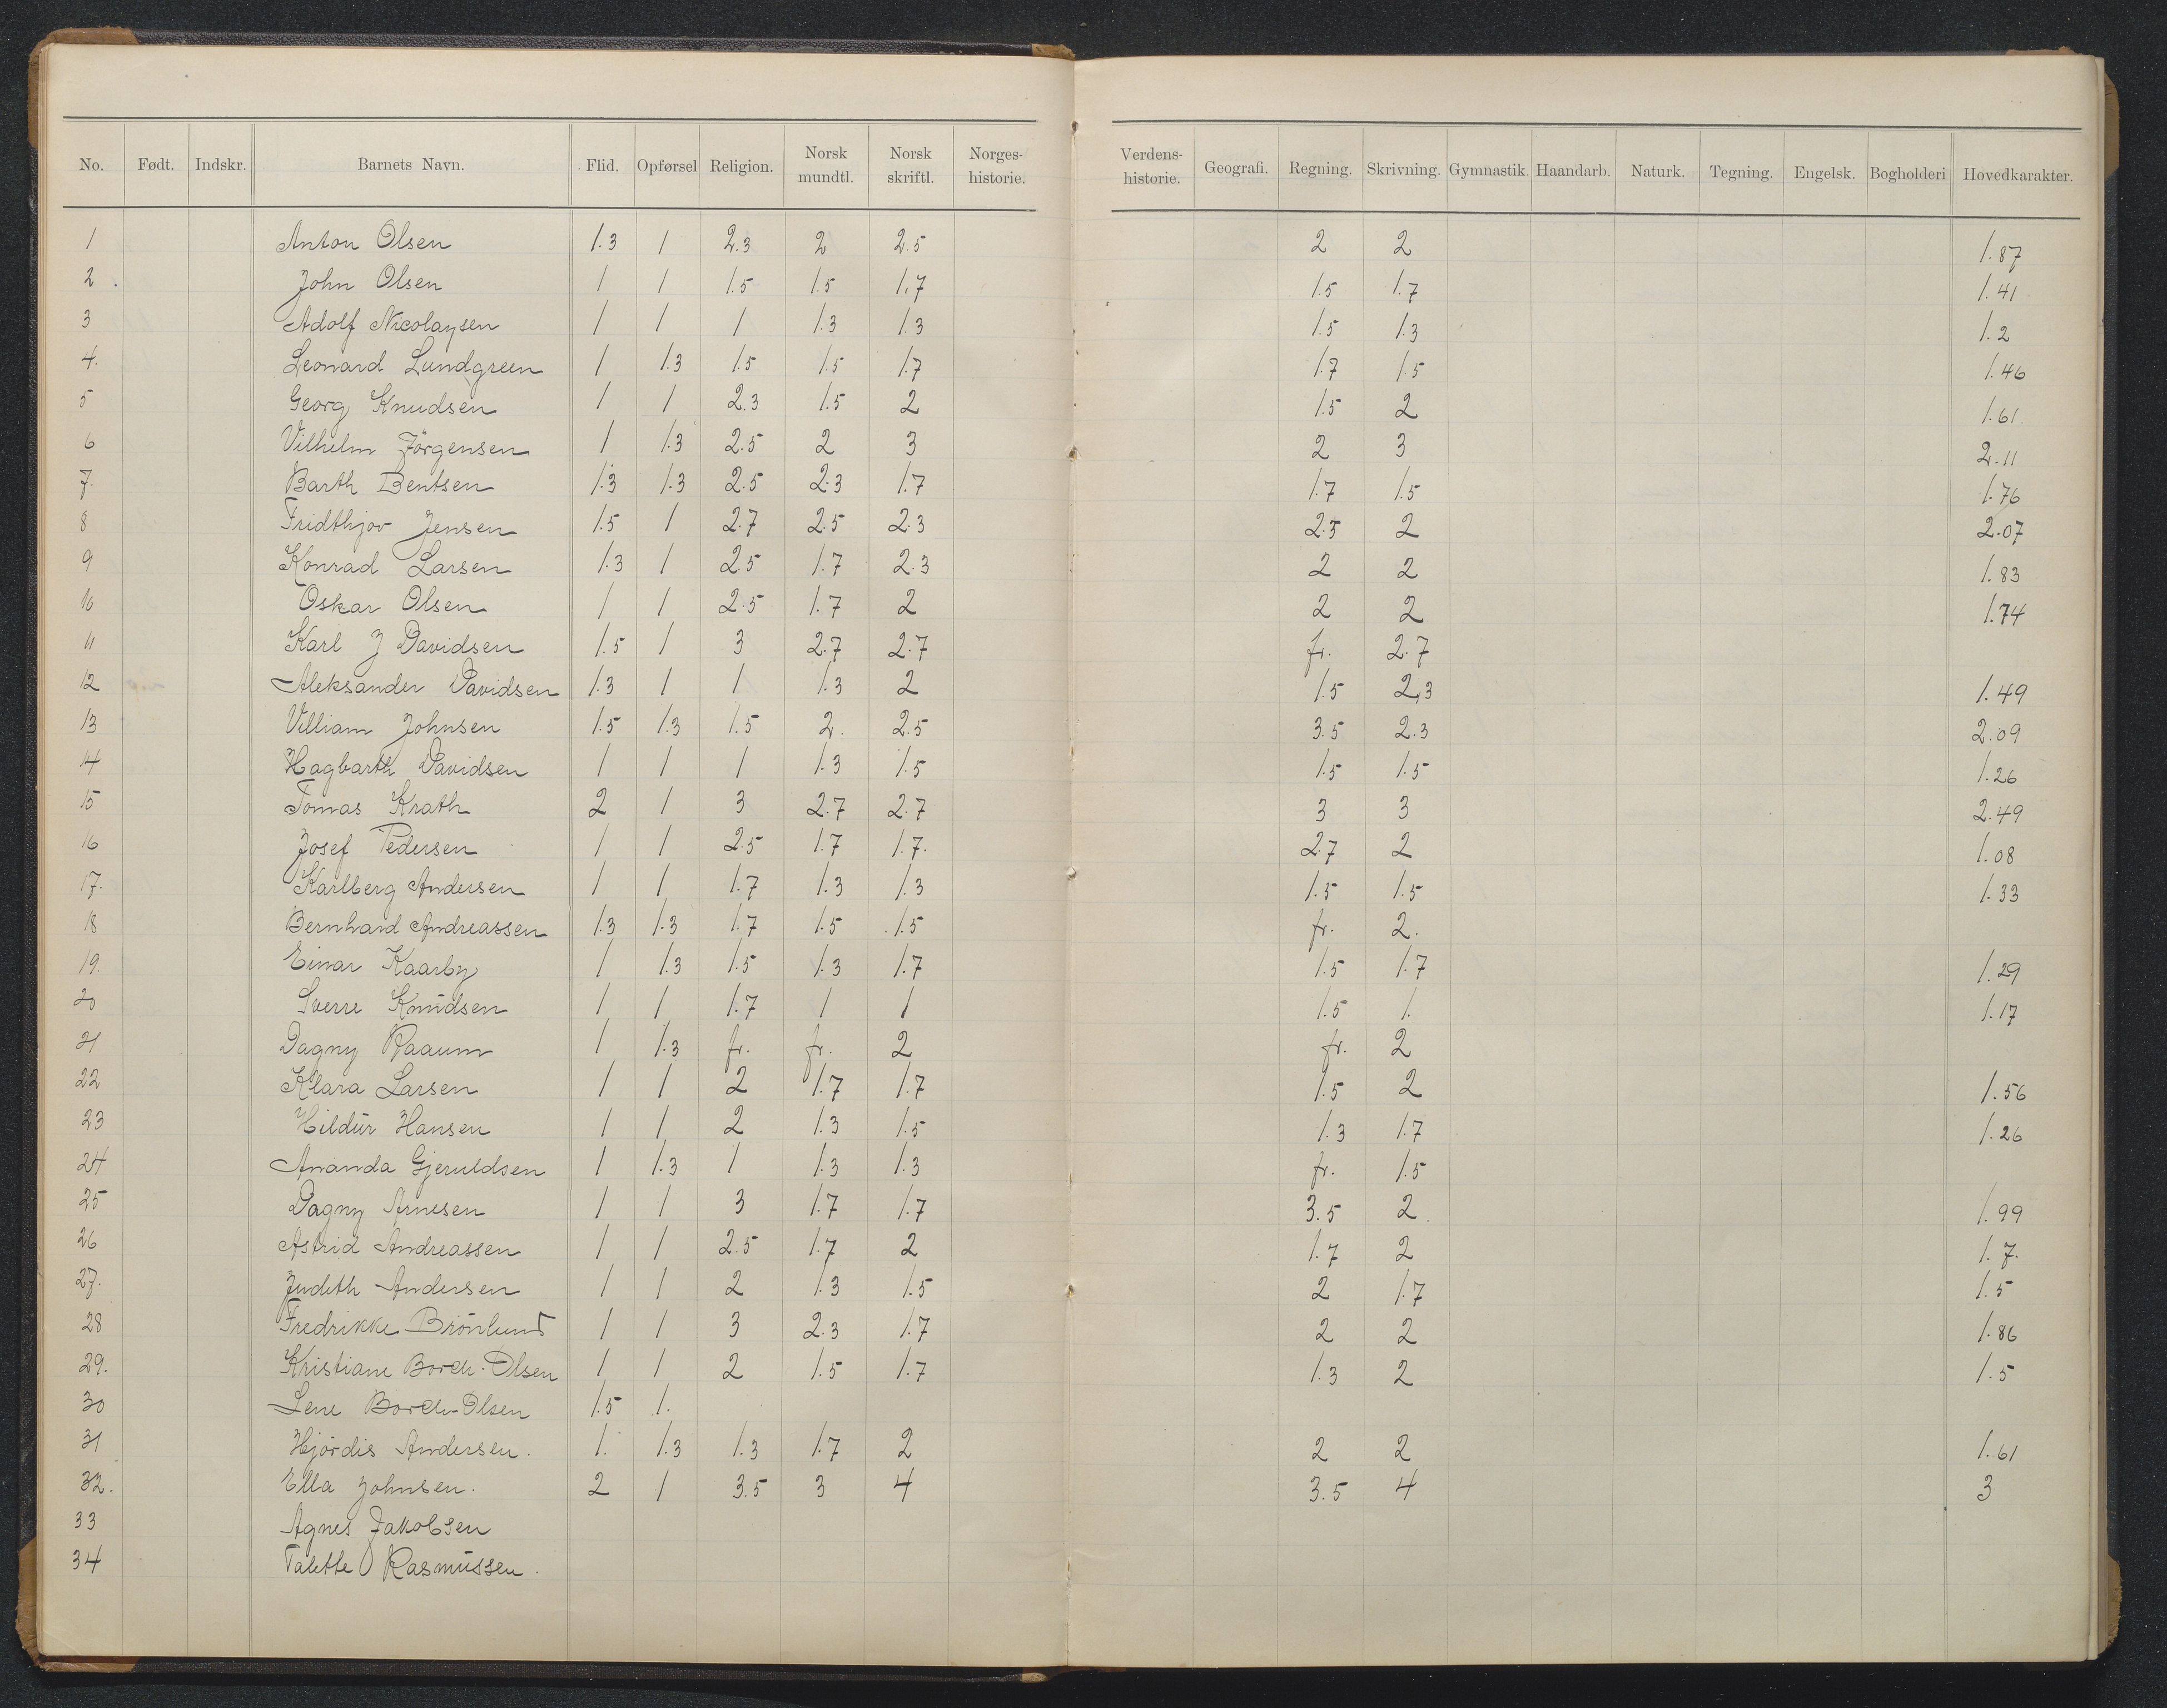 No. Født. Indskr. Barnets Navn. Flid. Opførsel Religion. Norsk mundtl. Norsk skriftl. Norges-historie. Verdens-historie. Geografi. Regning. Skrivning. Gymnastik. Haandarb. Naturk. Tegning. Engelsk. Bogholderi Hovedkarakter.
1 Anton Olsen 1.3 1 2.3 2 2.5 2 2 1.87
2 John Olsen 1 1 1.5 1.5 1.7 1.5 1.7 1.41
3 Adolf Nicolaysen 1 1 1 1.3 1.3 1.5 1.3 1.2
4. Leonard Lundgreen 1 1.3 1.5 1.5 1.7 1.7 1.5 1.46
5 Georg Knudsen 1 1 2.3 1.5 2 1.5 2 1.61.
6 Vilhelm Jörgensen 1 1.3 2.5 2 3 2 3 2.11
7. Barth Bentsen 1.3 1.3 2.5 2.3 1.7 1.7 1.5 1.76
8 Fridthjov Jensen 1.5 1 2.7 2.5 2.3 2.5 2 2.07
9 Konrad Larsen 1.3 1 2.5 1.7 2.3 2 2 1.83
10 Oskar Olsen 1 1 2.5 1.7 2 2 2 1.74
11 Karl J Davidsen 1.5 1 3 2.7 2.7 fr. 2.7
12 Aleksander Davidsen 1.3 1 1 1.3 2 1.5 2,3 1.49
13 Villiam Johnsen 1.5 1.3 1.5 2. 2.5 3.5 2.3 2.09
14 Hagbarth Davidsen 1 1 1 1.3 1.5 1.5 1.5 1.26
15 Tomas Krath 2 1 3 2.7 2.7 3 3 2.49
16 Josef Pedersen 1 1 2.5 1.7 1.7. 2.7 2 1.08
17. Karlberg Andersen 1 1 1.7 1.3 1.3 1.5 1.5 1.33
18 Bernhard Andreassen 1.3 1.3 1.7 1.5 1.5 fr. 2.
19. Einar Kaarby 1 1.3 1.5 1.3 1.7 1.5 1.7 1.29
20 Sverre Knudsen 1 1 1.7 1 1 1.5 1. 1.17
21 Dagny Raaum 1 1.3 fr. fr. 2 fr. 2
22 Klara Larsen 1 1 2 1.7 1.7 1.5 2 1.56
23 Hildur Hansen 1 1 2 1.3 1.5 1.3 1.7 1.26
24 Ananda Gjeruldsen 1 1.3 1 1.3 1.3 fr. 1.5
25 Dagny Arnesen 1 1 3 1.7 1.7 3.5 2 1.99
26 Astrid Andreassen 1 1 2.5 1.7 2 1.7 2 1.7.
27. Judith Andersen 1 1 2 1.3 1.5 2 1.7 1.5
28 Fredrikke Brönlund 1 1 3 2.3 1.7 2 2 1.86
29. Kristiane Borch-Olsen 1 1 2 1.5 1.7 1.3 2 1.5
30 Lene Borch-Olsen 1.5 1.
31 Hjördis Andersen. 1. 1.3 1.3 1.7 2 2 2 1.61
32. Ella Johnsen. 2 1 3.5 3 4 3.5 4 3
33 Agnes Jakobsen
34 Talette Rasmussen.